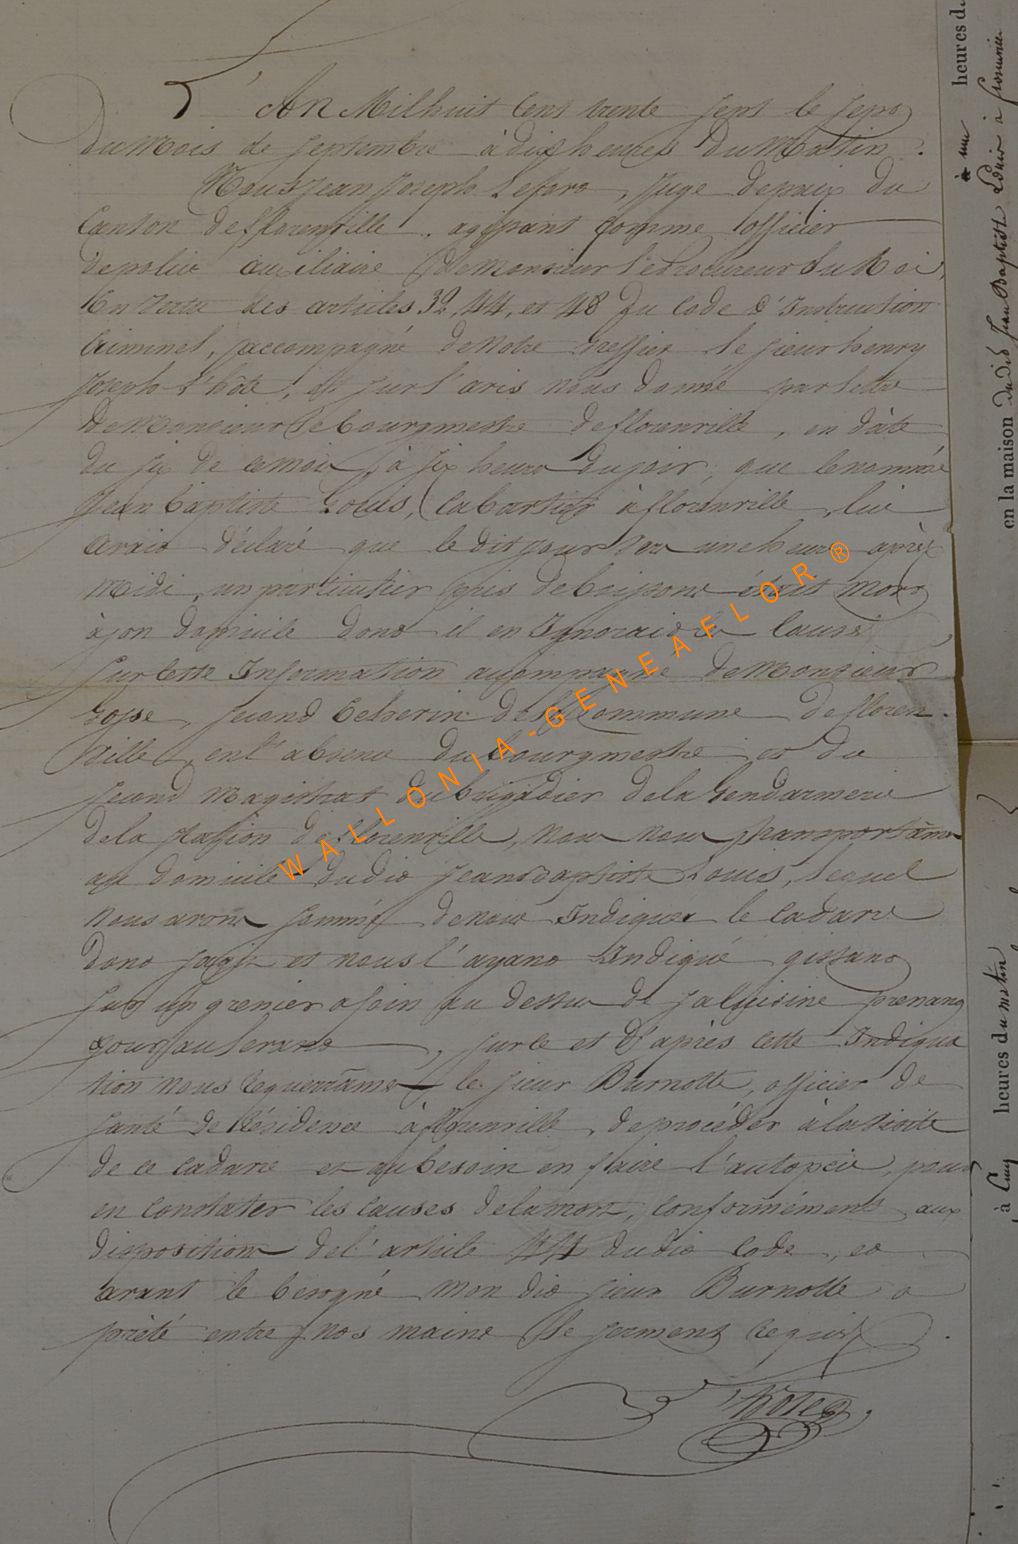 L'An Mil huit Cent trente sept le sept
du Mois de septembre à dix heures du Matin.
Nous Jean Joseph Lefort, juge de paix du
Canton de florenville, agissant comme officier
de police auxiliaire de Monsieur le procureur du Roi,
En vertu des articles 32, 44, et 48 du Code d'Instruction
Criminel, accompagné de Notre Greffier le sieur henry
Joseph L'hôte, et sur l'avis nous donné par lettre
de Monsieur le bourgmestre de florenville, en date
du six de ce mois, à six heures du soir, que le nommé
Jean baptiste Goues, Cabartier à florenville, lui
avait déclaré que le dit jour vers une heure après
Midi, un particulier pris de boissons était Mort
à son domicile dont il en Ignorait la Cause
sur cette Information accompagné de Monsieur
second Echevin de la Commune de floren-
ville, en l'absence du bourgmestre, et du
second Magistrat du brigadier de la Gendarmerie
de la station de florenville, Nous nous transportâmes
au domicile du dit Jean Baptiste Goues, lequel
Nous avons sommé de nous Indiquer le cadavre
dont s'agit et nous l'ayant Indiqué gissant
sur un grenier à foin au dessus de sa cuisine prenant
jour au levant, sur ce et d'après cette Indiqua
tion nous requerrâmes le sieur Burnotte, officier de
santé de Résidence à florenville, de procéder à la visite
de ce cadavre et au besoin en faire l'autopcie, pour
en constater les causes de la mort, conformément aux
dispositions de l'article 44 du dit Code, et
avant le besogné mon dit sieur Burnotte a
prêté entre nos mains le serment requis.
L'hôte
WALLONIA-GENEAFLOR®
heures d
à une
en la maison du dit Jean Baptiste
heures du matin
à Cinq